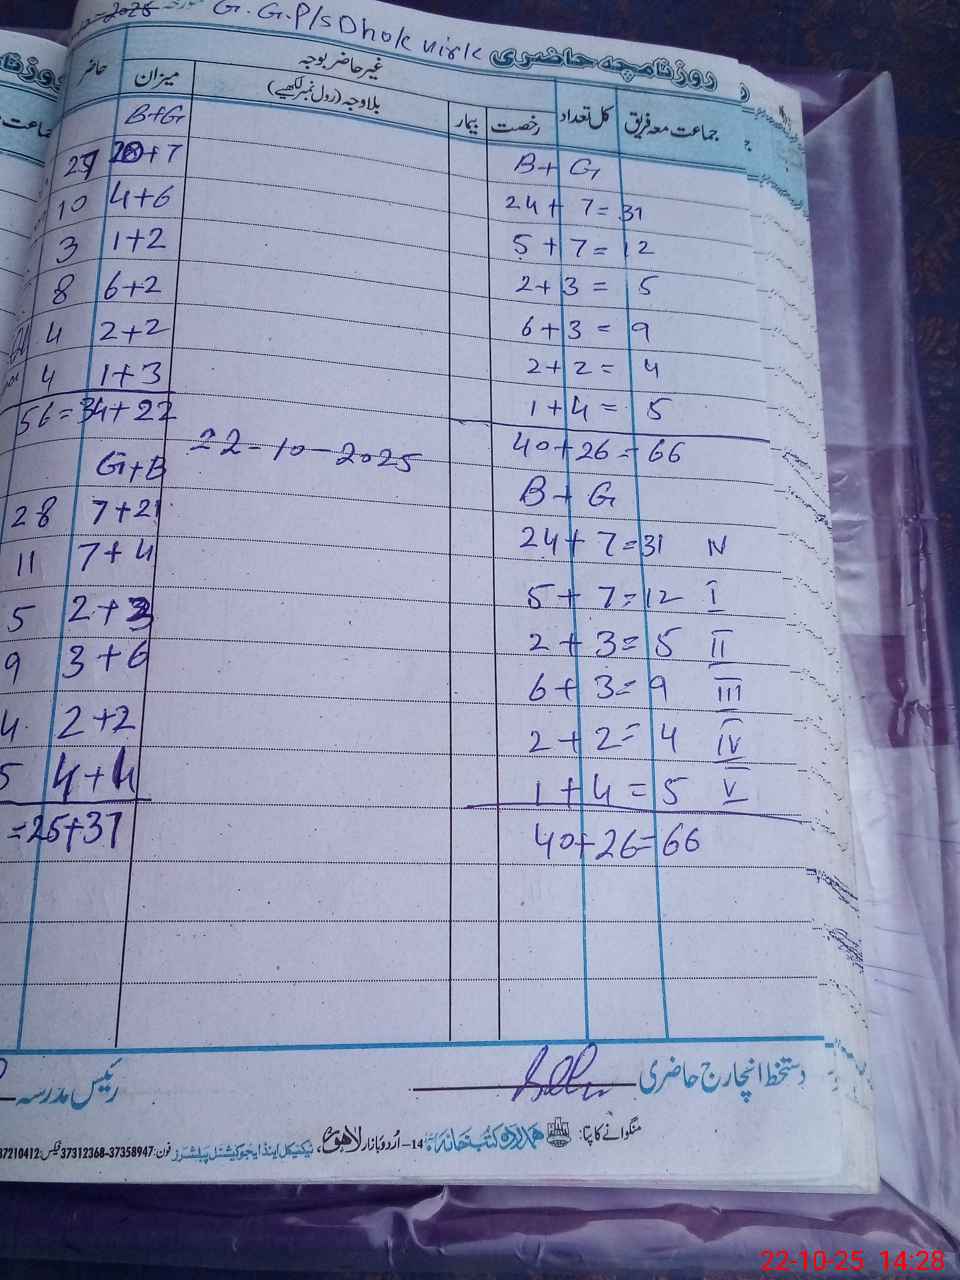 G.G.P/s Dhok
روزنامچہ حاضری
جماعت معہ فریق کل تعداد رخصت بیمار غیر حاضر بوجہ میزان حاضر
بلاوجہ (رول نمبر لکھیے)
B+G B+G
24+7=31 +7
5+7=12 4+6 10
2+3=5 1+2 3
6+3=9 6+2 8
2+2=4 2+2 4
1+4=5 1+3 4
40+26=66 56=34+22
22-10-2025
B+G G+B
24+7=31 N 7+21 28
5+7=12 I 7+4 11
2+3=5 II 2+3 5
6+3=9 III 3+6 9
2+2=4 IV 2+2 4
1+4=5 V 4+4 5
40+26=66 =25+37
دستخط انچارج حاضری رئیس مدرسہ
منگوانے کا پتا: ہمدرد کتب خانہ 14-اُردو بازار لاہور، ٹیکنیکل اینڈ ایجوکیشنل پبلشرز فون: 37358947-37312368 فیکس: 37210412
22-10-25 14:28